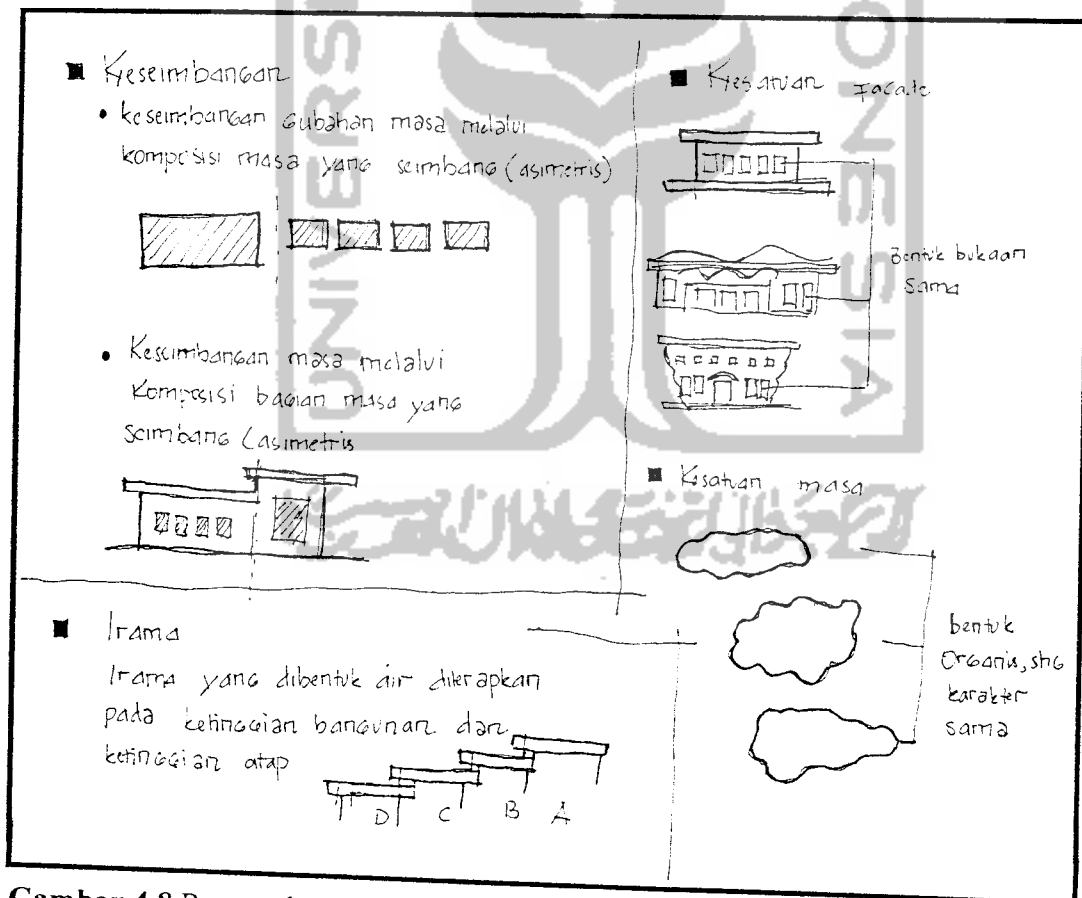 Keseimbangan
• keseimbangan gubahan masa melalui
komposisi masa yang seimbang (asimetris)
• Keseimbangan masa melalui
komposisi bagian masa yang
seimbang (asimetris
Irama
Irama yang dibentuk air diterapkan
pada ketinggian bangunan dan
ketinggian atap
D C B A
Kesatuan Facade
Bentuk bukaan
sama
Kesatuan masa
bentuk
Organis, shg
karakter
sama
Gambar 4.8
UNIVERS
ONESIA